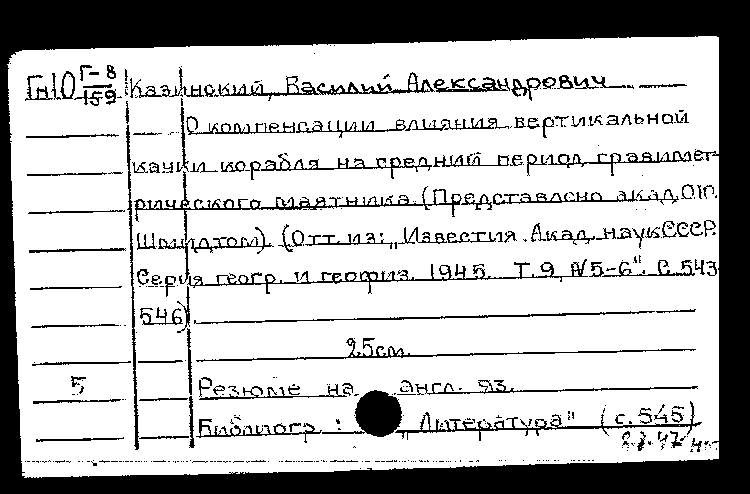 Гн10 Г-8/159 Казинский, Василий Александрович
О компенсации влияния вертикальной
качки корабля на средний период гравимет-
рического маятника. (Представлено акад. О.Ю.
Шмидтом). (Отт. из: "Известия Акад. наук СССР.
Серия геогр. и геофиз. 1945. Т.9, №5-6". С. 543-
546).
25см.
5 Резюме на англ. яз.
Библиогр.: "Литература" (с. 545)